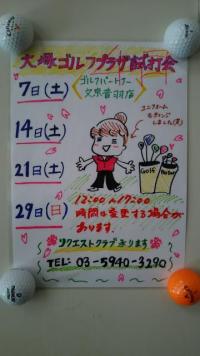 大塚ゴルフプラザ試打会
ゴルフパートナー
文京音羽店
7日(土)
14日(土)
21日(土)
29日(日)
ユニフォーム
もチェンジ
しました(笑)
GOLF
12:00〜17:00
時間は変更する場合が
あります。
リクエストクラブ承ります
TEL: 03-5940-3290